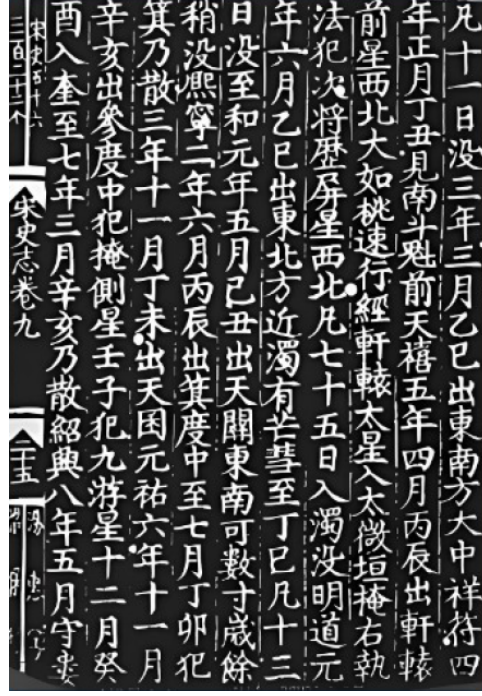 凡十一日没三年三月乙巳出東南方大中祥符四
年正月丁丑見南斗魁前天禧五年四月丙辰出軒轅
前星西北大如桃速行經軒轅太星入太微垣掩右執
法犯次將歷屏星西北凡七十五日入濁没明道元
年六月乙巳出東北方近濁有芒彗至丁巳凡十三
日没至和元年五月己丑出天關東南可數寸歲餘
稍没熙寧二年六月丙辰出箕度中至七月丁卯犯
箕乃散三年十一月丁未出天囷元祐六年十一月
辛亥出參度中犯掩側星壬子犯九游星十二月癸
酉入奎至七年三月辛亥乃散紹興八年五月守婁
宋史五十六
三百二十二个
宋史志卷九
二十五